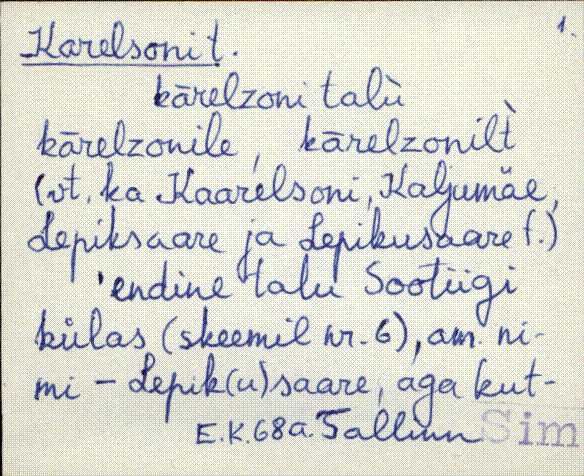 1.
Karelsoni t.
kārelzoni talù
kārelzonile, kārelzonilt̀
(vt. ka Kaarelsoni, Kaljumäe,
Lepiksaare ja Lepikusaare t.)
'endine talu Sootiigi
külas (skeemil nr. 6), am. ni-
mi - Lepik(u)saare, aga kut-
E.K. 68 a. Tallinn Sim